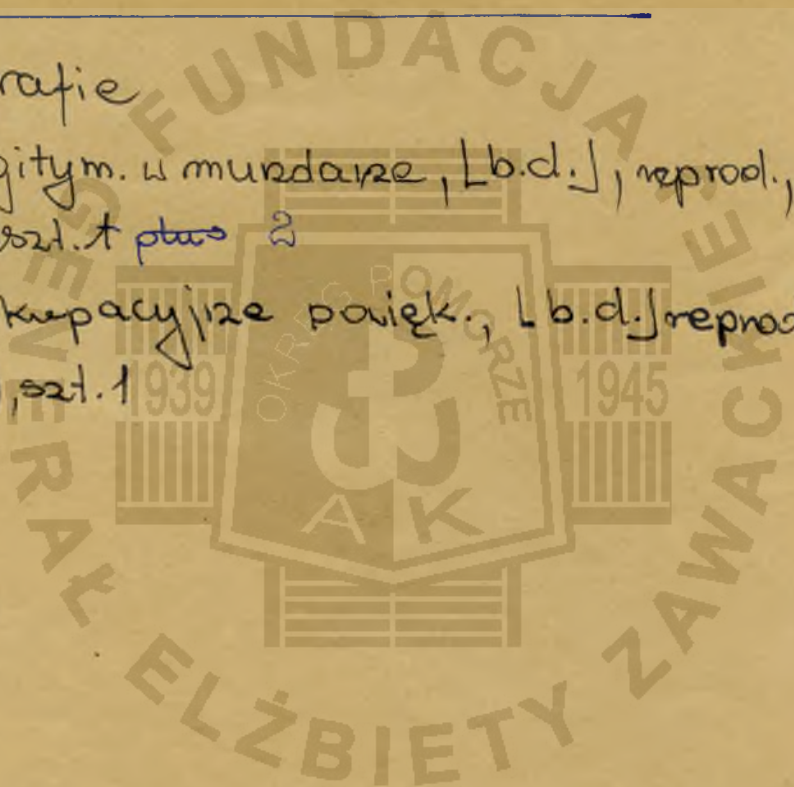 rafie
gitym. w mundurze, [b.d.], reprod.,
szt. 1 plus 2
kupacyjne powięk., [b.d.] reprod
, szt. 1
FUNDACJA
GENERAŁ ELŻBIETY ZAWACKIEJ
OKRĘG POMORZE
1939
1945
AK